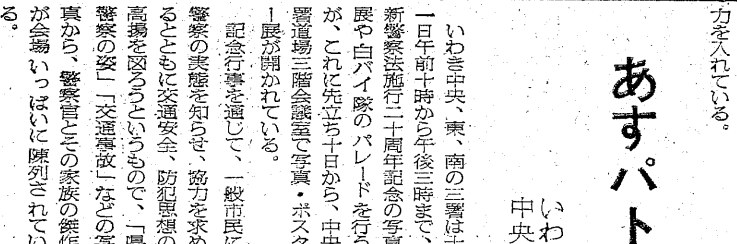 力を入れている。
あすパト
いわ
中央
いわき中央、東、南の三署は十
一日午前十時から午後三時まで、
新警察法施行二十周年記念の写真
展や白バイ隊のパレードを行う
が、これに先立ち十日から、中央
署道場三階会議室で写真・ポスタ
ー展が開かれている。
記念行事を通じて、一般市民に
警察の実態を知らせ、協力を求め
るとともに交通安全、防犯思想の
高揚を図ろうというもので、「県
警察の姿」「交通事故」などの写
真から、警察官とその家族の傑作
が会場いっぱいに陳列されてい
る。